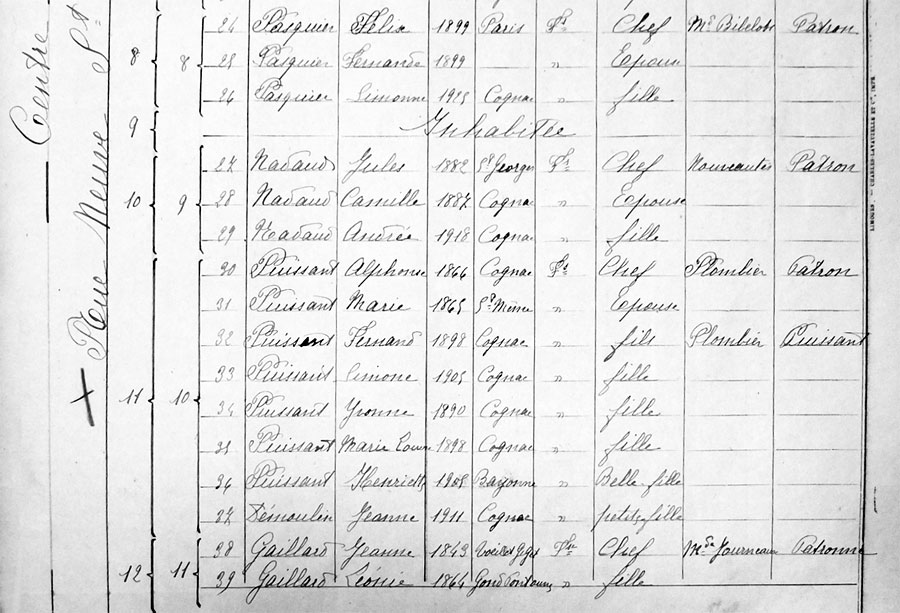 Centre
Rue Neuve St
24 Pasquier Félix 1899 Paris Fr Chef Md Bibelots Patron
8 8 25 Pasquier Fernande 1899 " Epouse
26 Pasquier Simonne 1925 Cognac " fille
9 Inhabitée
27 Nadaud Jules 1882 St Georges Fr Chef Nouveautés Patron
10 9 28 Nadaud Camille 1887 Cognac " Epouse
29 Nadaud Andrée 1918 Cognac " fille
30 Puissant Alphonse 1866 Cognac Fr Chef Plombier Patron
31 Puissant Marie 1865 " Epouse
32 Puissant Fernand 1898 Cognac " fils Plombier Puissant
33 Puissant Simone 1905 Cognac " fille
11 10 34 Puissant Yvonne 1890 Cognac " fille
35 Puissant Marie Louise 1898 Cognac " fille
36 Puissant Henriette 1905 Bayonne " Belle-fille
37 Démoulin Jeanne 1911 Cognac " petite fille
38 Gaillard Jeanne 1843 Fse Chef Mde Journeaux Patronne
12 11 39 Gaillard Léonie 1864 Gond Pontouvre " fille
LIMOGES. — CHARLES-LAVAUZELLE ET Cie, IMPR.